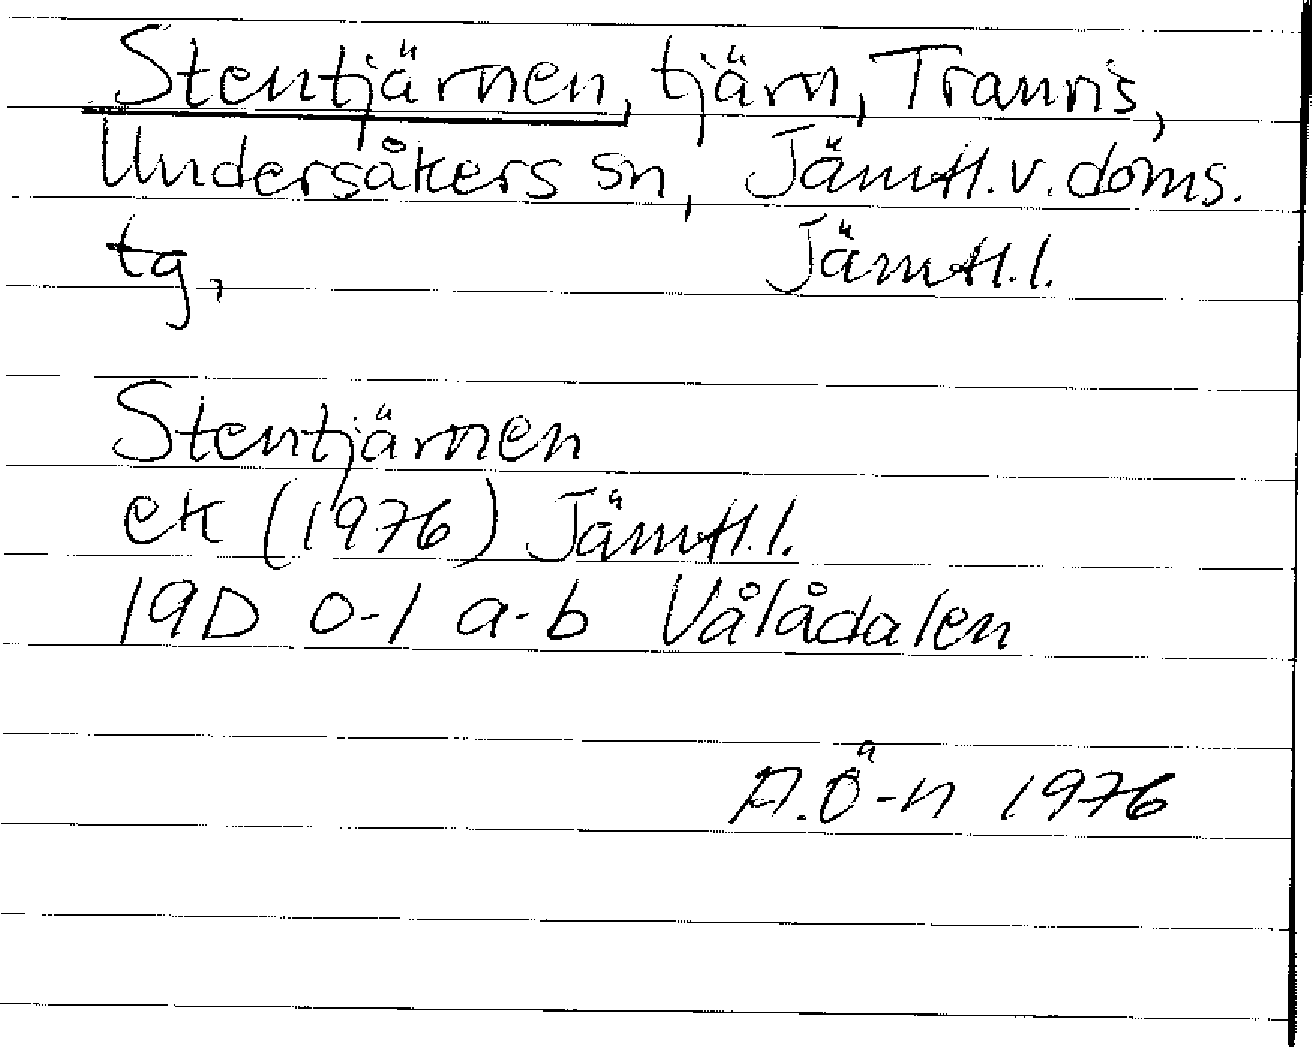 Stentjärnen, tjärn, Tranris,
Undersåkers sn, Jämtl. v. doms.
tg, Jämtl. l.
Stentjärnen
ek (1976) Jämtl. l.
19D 0-1 a-b Vålådalen
A.Ö-n 1976